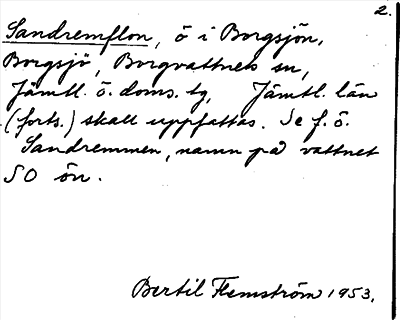 2.
Sandremflon, ö i Borgsjön,
Borgsjö, Borgvattnets sn,
Jämtl. ö. doms. tg, Jämtl. län
(forts.) skall uppfattas. Se f. ö.
Sandremmen, namn på vattnet
SO ön.
Bertil Flemström 1953.